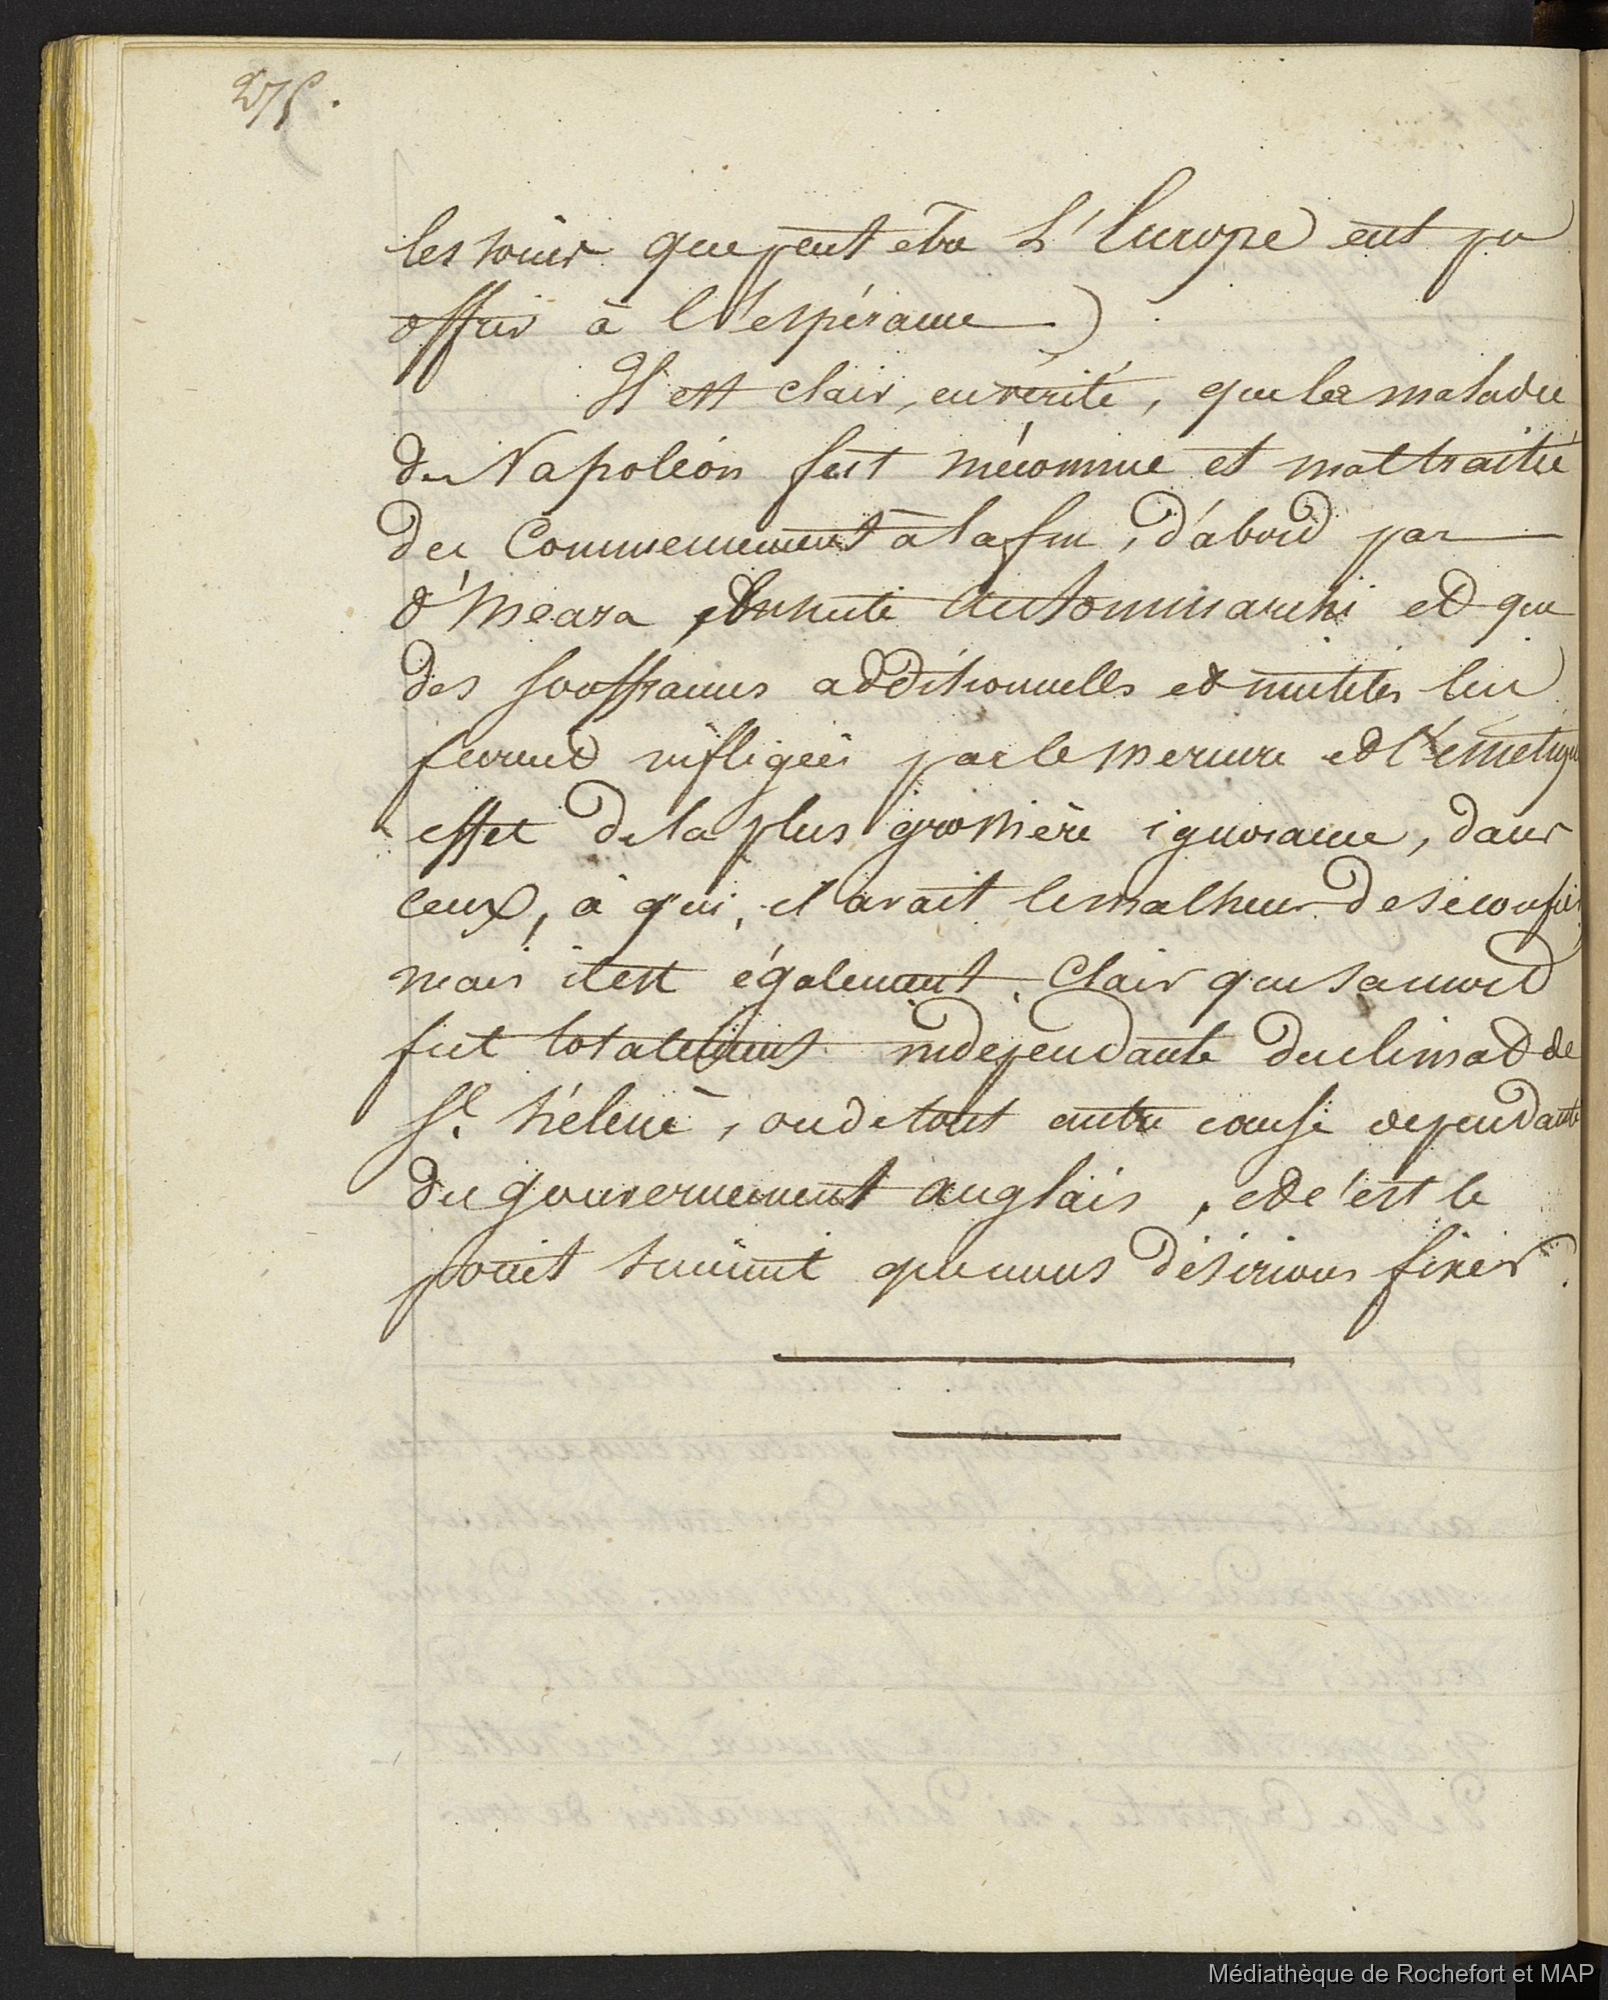 275.
les soins que peut etre L'Europe eut pu
offrir à l'espérance )
Il est clair, en vérité, que la maladie
de Napoléon fut méconnue et mal traitée
du Commencement à la fin, d'abord par
O'Meara, ensuite Autommarchi et que
des souffrances additionnelles et inutiles lui
furent infligées par le mercure et l'emetique
effet de la plus grossière ignorance, dans
ceux, à qui, il avait le malheur de se confier
mais il est également clair que sa mort
fut totalement independante du climat de
St. hélène, ou de tout autre cause dependante
du gouvernement anglais, et c'est le
point suivant que nous désirions fixer.
Médiathèque de Rochefort et MAP